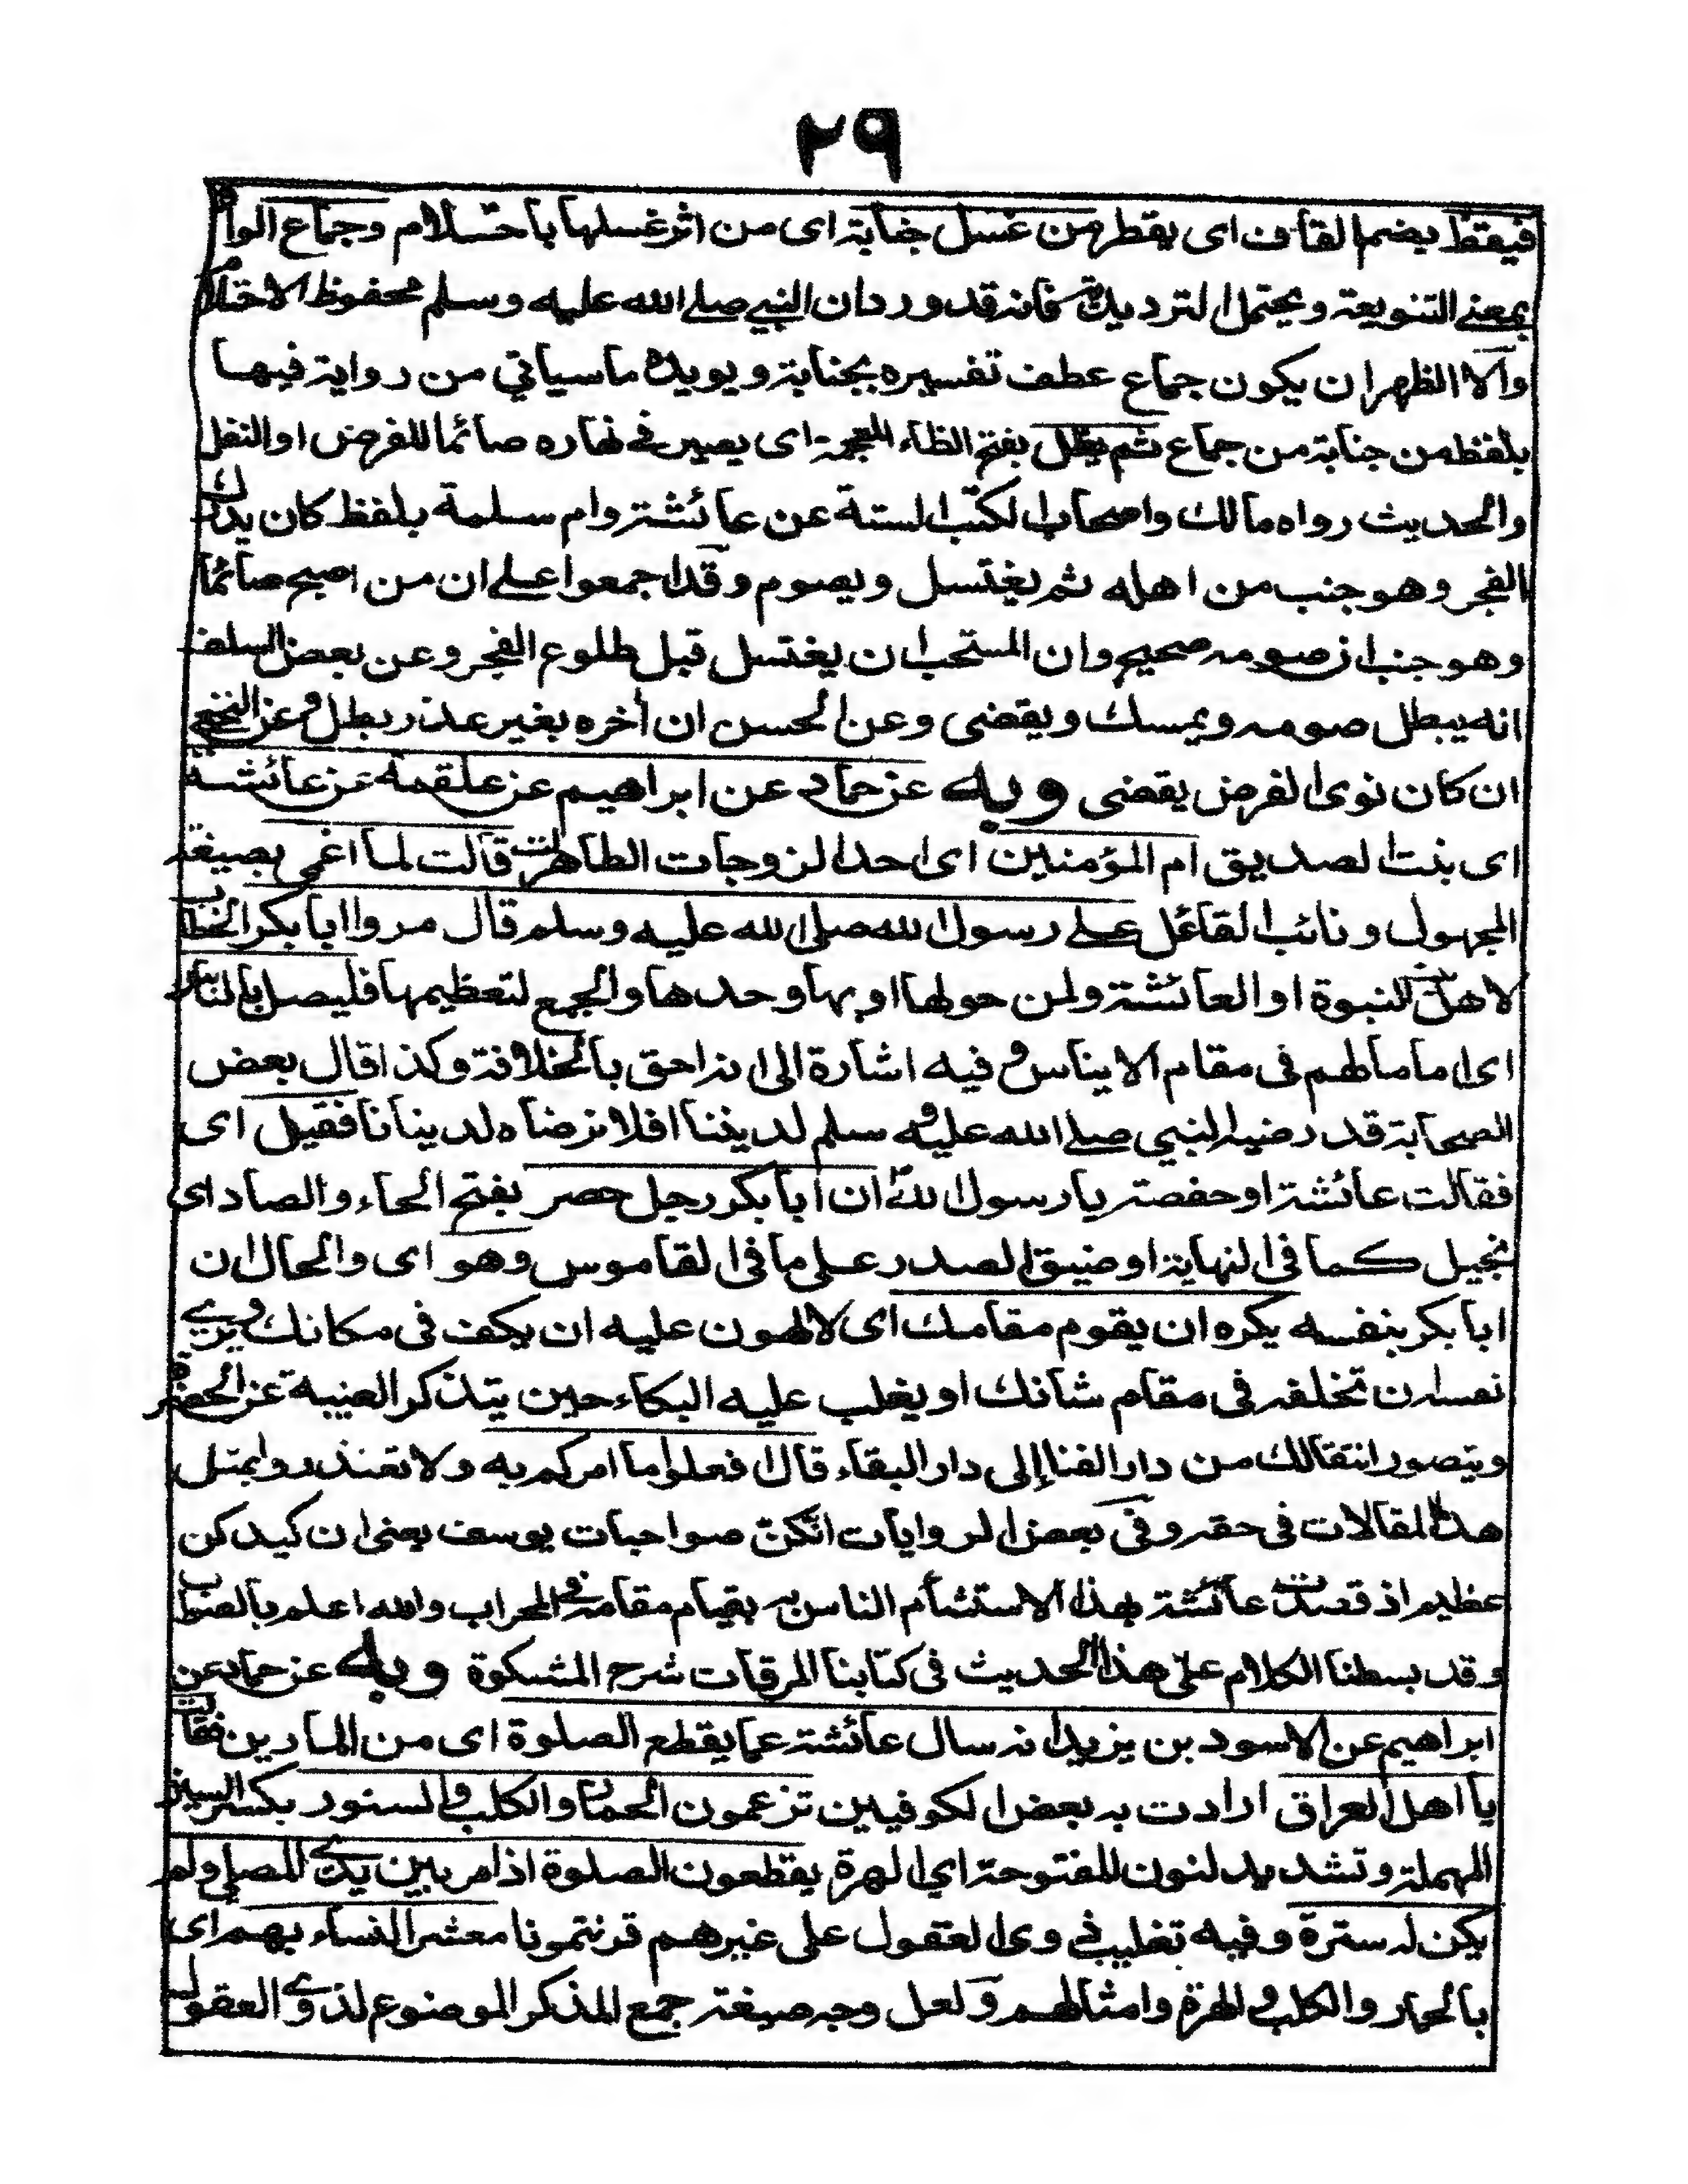 ٢٩
فيقطر بضم القاف اى يقطر من غسل جنابة اى من اثر غسلها باحتلام وجماع الواو
بمعنى التنويعة ويحتمل الترديدية فانه قد ورد ان النبي صلى الله عليه وسلم محفوظ الاحتلام
والاظهر ان يكون جماع عطف تفسيره بجنابة ويويده ما سياتي من رواية فيها
بلفظ من جنابة من جماع ثم يظل بفتح الظاء المعجمة اى يصير فى نهاره صائما للفرض او النفل
والحديث رواه مالك واصحاب الكتب الستة عن عائشة وام سلمة بلفظ كان يدركه
الفجر وهو جنب من اهله ثم يغتسل ويصوم وقد اجمعوا على ان من اصبح صائما
وهو جنب ان صومه صحيح وان المستحب ان يغتسل قبل طلوع الفجر وعن بعض السلف
انه يبطل صومه ويمسك ويقضى وعن الحسن ان أخره بغير عذر بطل وعن النخعي
ان كان نوى الفرض يقضى وبه عن حماد عن ابراهيم عن علقمة عن عائشة
اى بنت الصديق ام المؤمنين اى احد الزوجات الطاهرات قالت لما اغمى بصيغة
المجهول ونائب الفاعل على رسول الله صلى الله عليه وسلم قال مروا ابا بكر الخطاب
لاهل النبوة او العائشة ولمن حولها او بها وحدها والجمع لتعظيمها فليصل بالناس
اى اماما لهم فى مقام الايناس و فيه اشارة الى انه احق بالخلافة وكذا قال بعض
الصحابة قد رضيه النبي صلى الله عليه وسلم لديننا افلا نرضاه لدينانا فقيل اى
فقالت عائشة او حفصة يا رسول الله ان أبا بكر رجل حصر بفتح الحاء والصاد اى
بخيل كما فى النهاية او ضيق الصدر على ما فى القاموس وهو اى والحال ان
ابا بكر بنفسه يكره ان يقوم مقامك اى لا لهون عليه ان يكف فى مكانك ويرى
نفسه ان تخلفه فى مقام شانك او يغلب عليه البكاء حين يتذكر الغيبة عن الحضرة
ويتصور انتقالك من دار الفنا إلى دار البقاء قال افعلوا ما امركم به ولا تعتذروا بمثل
هذه المقالات فى حقه وفى بعض الروايات انكن صواحبات يوسف يعنى ان كيدكن
عظيم اذ قصدت عائشة بهذا الاستشأم الناس به بقيام مقامه فى المحراب والله اعلم بالصواب
وقد بسطنا الكلام على هذا الحديث فى كتابنا المرقات شرح المشكوة وبه عن حماد عن
ابراهيم عن الاسود بن يزيد انه سال عائشة عما يقطع الصلوة اى من المارين فقالت
يا اهل العراق ارادت به بعض الكوفيين تزعمون ان الحمار والكلب والسنور بكسر السين
المهملة وتشديد لنون المفتوحة اى الهرة يقطعون الصلوة اذا مر بين يدى المصلى ولم
يكن له سترة وفيه تغليب ذوى العقول على غيرهم قرنتمونا معشر النساء بهم اى
بالحمار والكلب والهرة وامثالهم ولعل وجه صيغة جمع المذكر الموضوع لذوى العقول